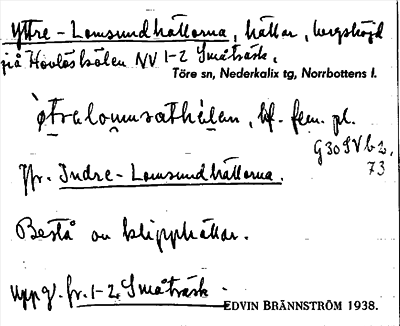 Yttre-Lomsundhällorna, hällar, bergshöjd
på Hovlöskölen NV 1-2 Småträsk.
Töre sn, Nederkalix tg, Norrbottens l.
bf. fem. pl.
G30SVb2,
73
Jfr. Indre-Lomsundhällorna.
Bestå av klipphällar.
Uppg. fr. 1-2 Småträsk.
EDVIN BRÄNNSTRÖM 1938.